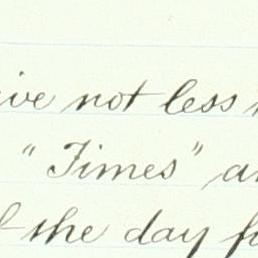 ive not less
"Times" a
the day f